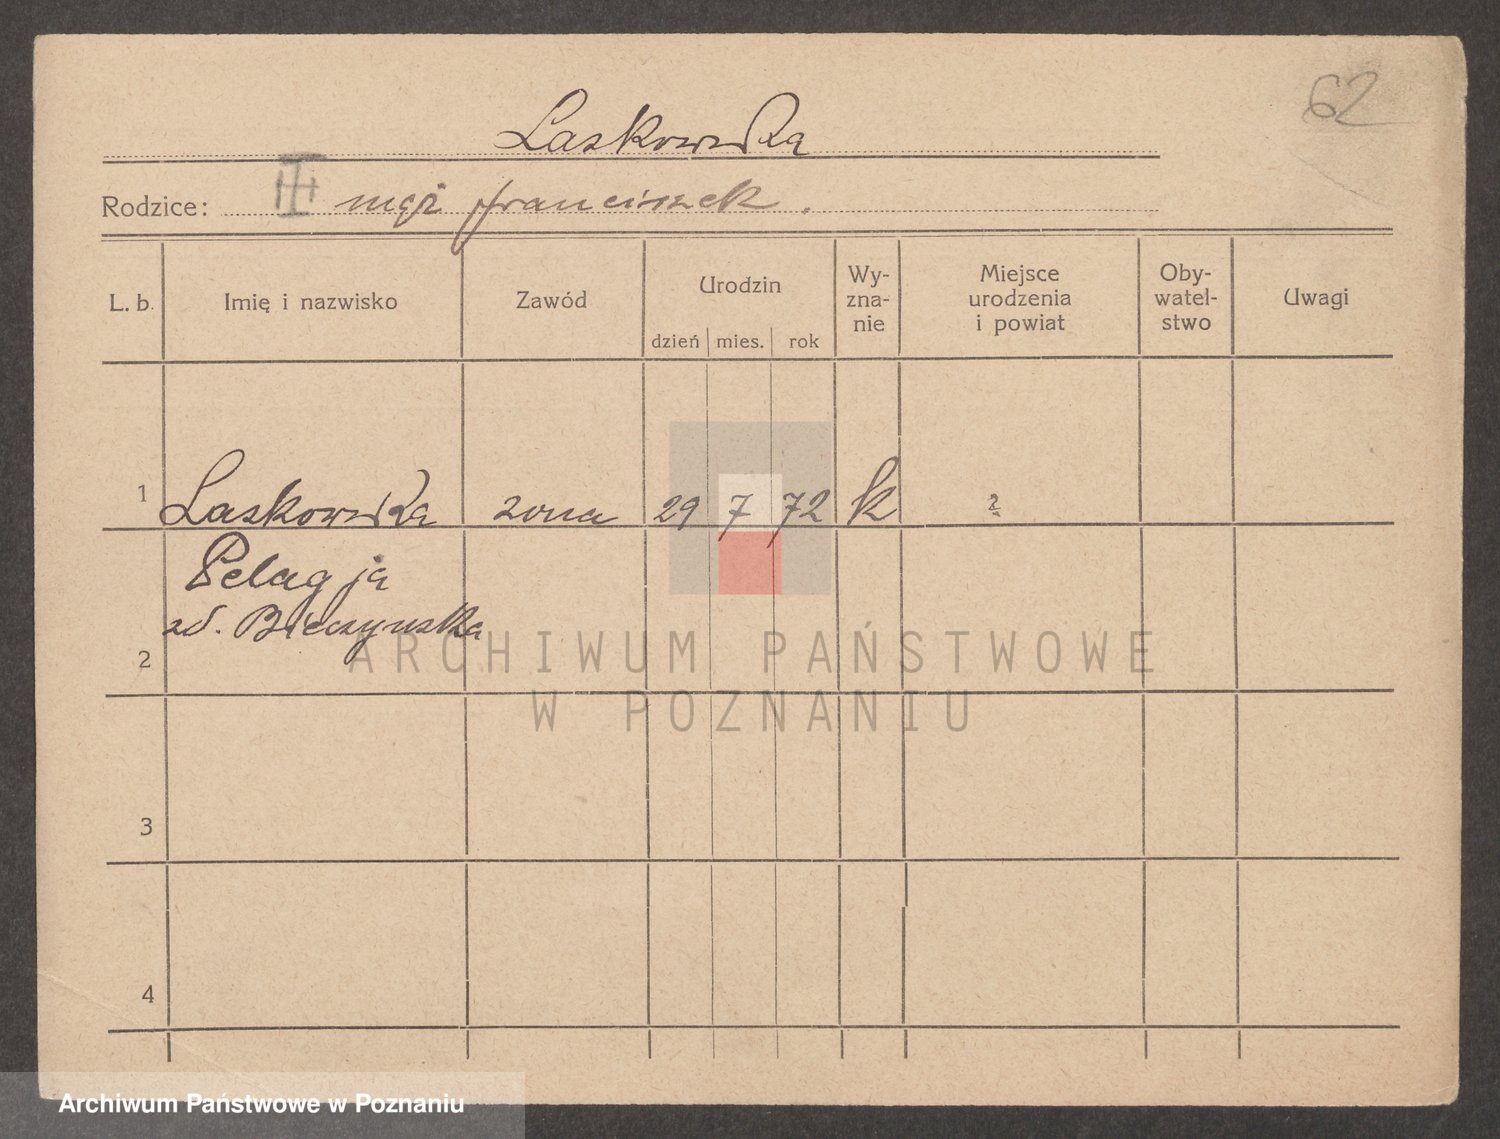 62
Laskowska
Rodzice: III mąż franciszek.
L. b. Imię i nazwisko Zawód Urodzin dzień mies. rok Wy-zna-nie Miejsce urodzenia i powiat Oby-watel-stwo Uwagi
1 Laskowska żona 29 7 72 k ?
Pelagja
zd. Bieczyńska
2
ARCHIWUM PAŃSTWOWE
W POZNANIU
3
4
Archiwum Państwowe w Poznaniu